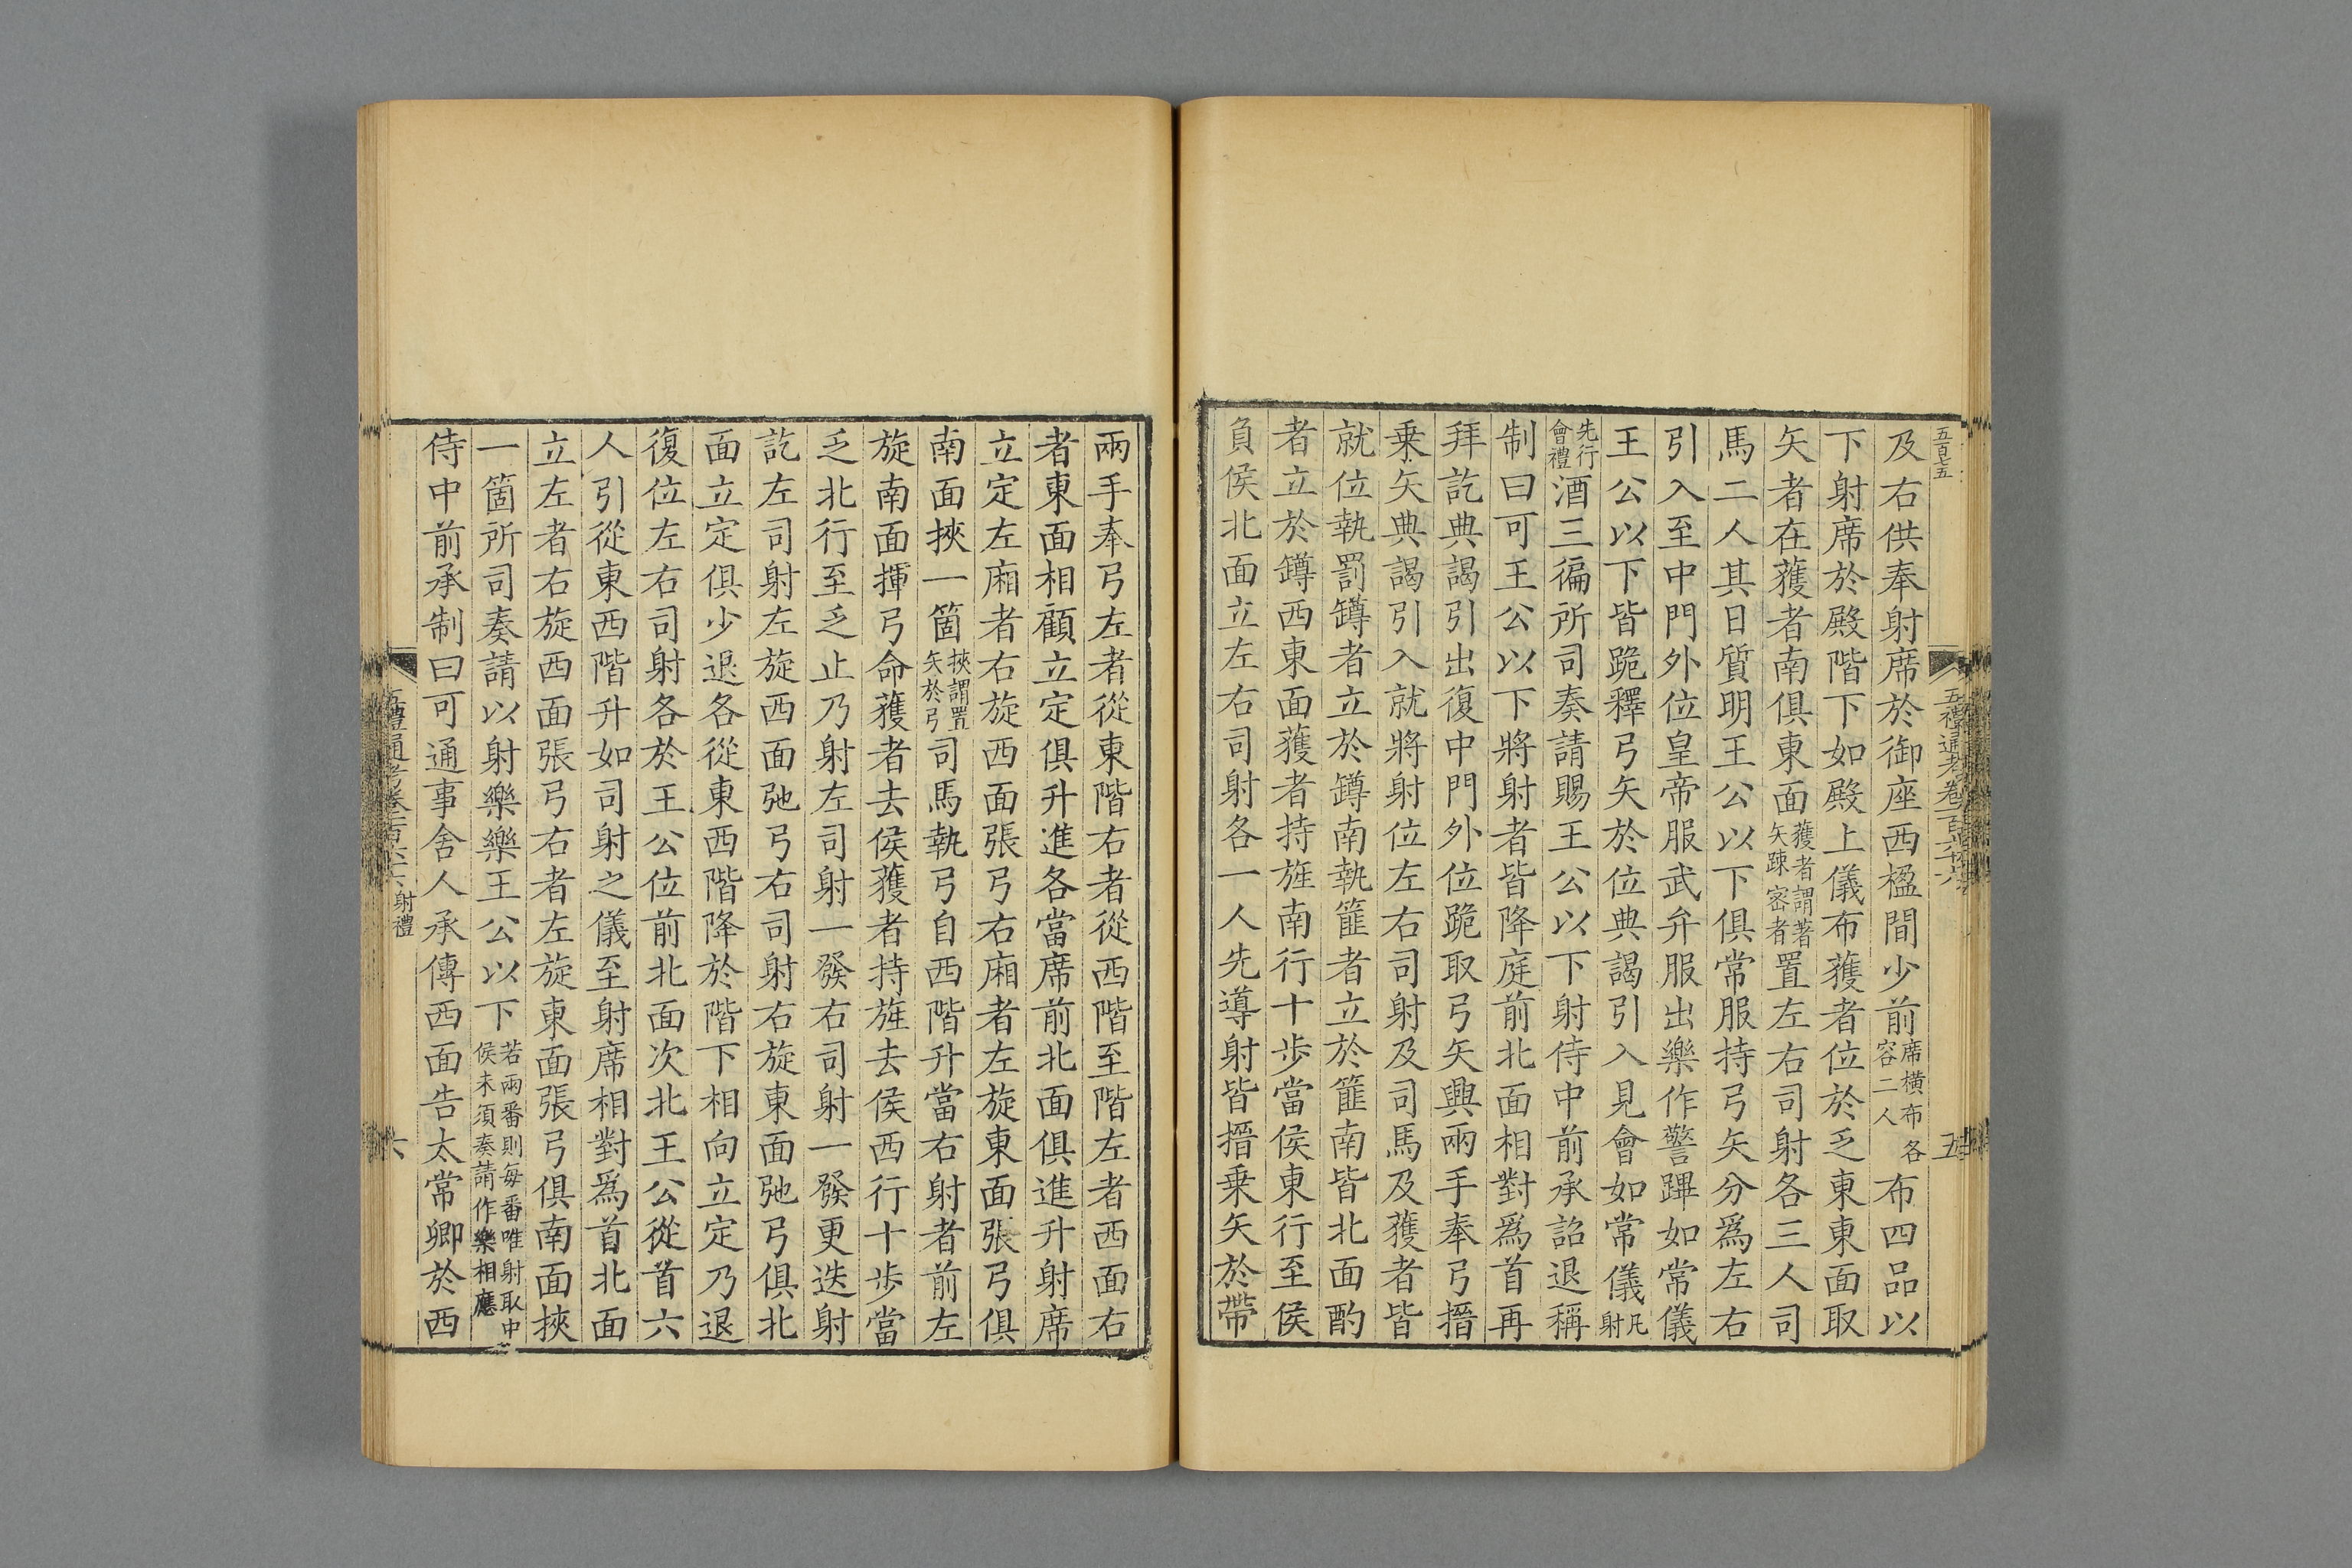 五百七五
五禮通考卷一百六十六
五
及右供奉射席於御座西楹間少前席橫布各容二人布四品以
下射席於殿階下如殿上儀布獲者位於乏東東面取
矢者在獲者南俱東面獲者謂著矢踈密者置左右司射各三人司
馬二人其日質明王公以下俱常服持弓矢分爲左右
引入至中門外位皇帝服武弁服出樂作警蹕如常儀
王公以下皆跪釋弓矢於位典謁引入見會如常儀凡射
先行會禮酒三徧所司奏請賜王公以下射侍中前承詔退稱
制曰可王公以下將射者皆降庭前北面相對爲首再
拜訖典謁引出復中門外位跪取弓矢興兩手奉弓搢
乗矢典謁引入就將射位左右司射及司馬及獲者皆
就位執罰罇者立於罇南執篚者立於篚南皆北面酌
者立於罇西東面獲者持旌南行十步當侯東行至侯
負侯北面立左右司射各一人先導射皆搢乗矢於帶
兩手奉弓左者從東階右者從西階至階左者西面右
者東面相顧立定俱升進各當席前北面俱進升射席
立定左廂者右旋西面張弓右廂者左旋東面張弓俱
南面挾一箇挾謂置矢於弓司馬執弓自西階升當右射者前左
旋南面揮弓命獲者去侯獲者持旌去侯西行十步當
乏北行至乏止乃射左司射一發右司射一發更迭射
訖左司射左旋西面弛弓右司射右旋東面弛弓俱北
面立定俱少退各從東西階降於階下相向立定乃退
復位左右司射各於王公位前北面次北王公從首六
人引從東西階升如司射之儀至射席相對爲首北面
立左者右旋西面張弓右者左旋東面張弓俱南面挾
一箇所司奏請以射樂樂王公以下若兩番則每番唯射取中侯未須奏請作樂相應
侍中前承制曰可通事舍人承傳西面告太常卿於西
五禮通考卷一百六十六 射禮
六